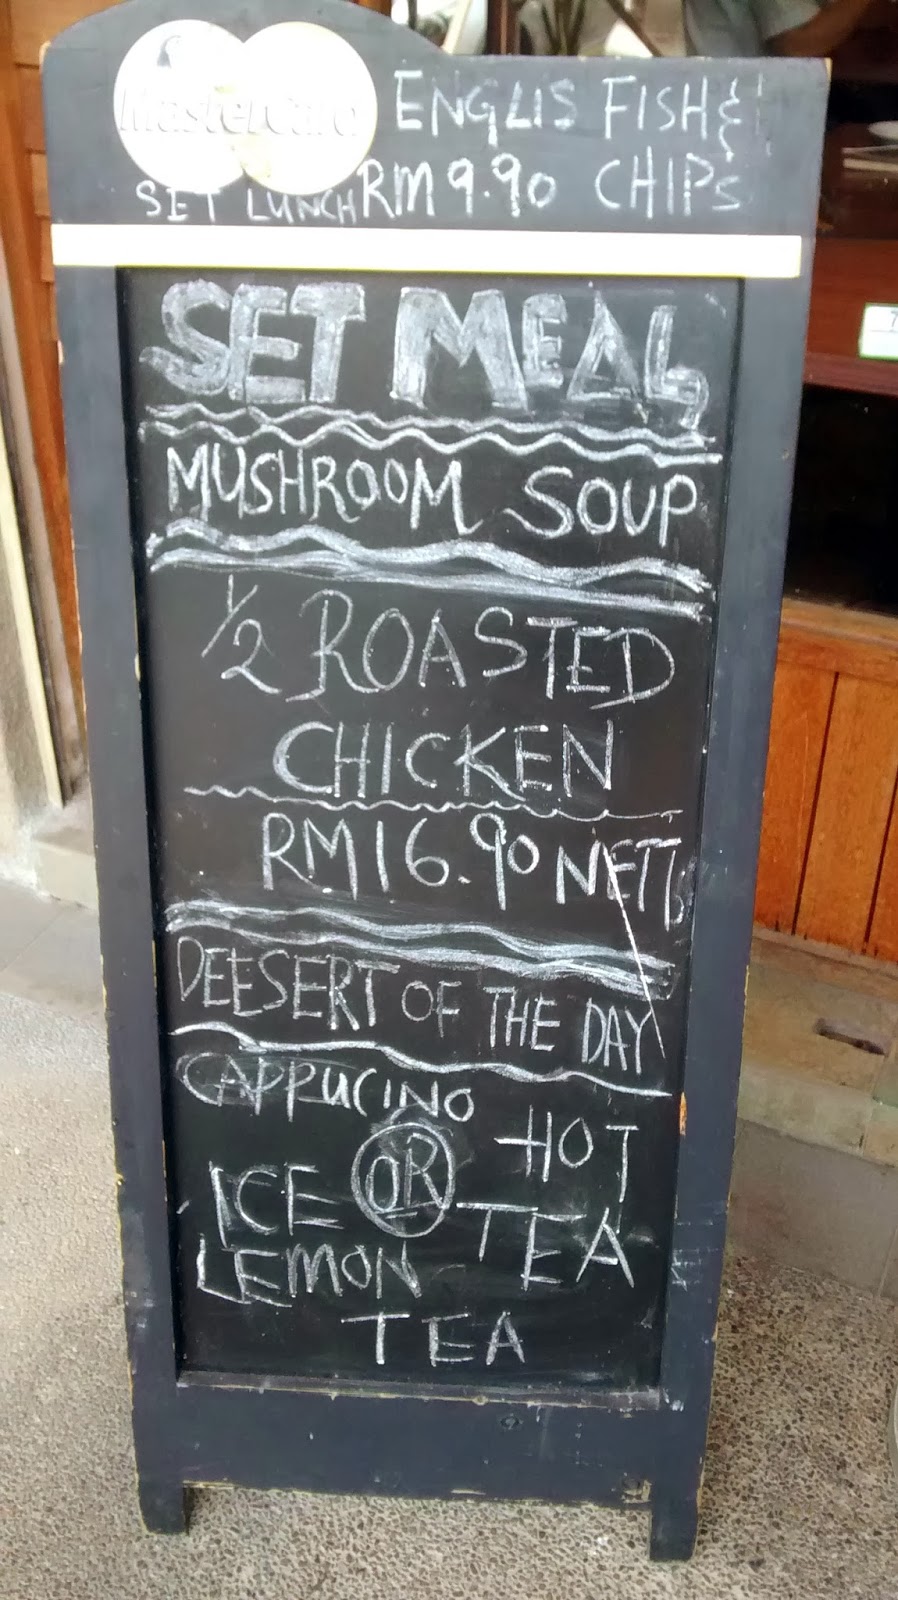 MasterCard
ENGLIS FISH &
SET LUNCH RM 9.90 CHIPS
SET MEAL
MUSHROOM SOUP
1/2 ROASTED
CHICKEN
RM 16.90 NETT
DEESERT OF THE DAY
CAPPUCINO
HOT
OR
ICE TEA
LEMON
TEA
7